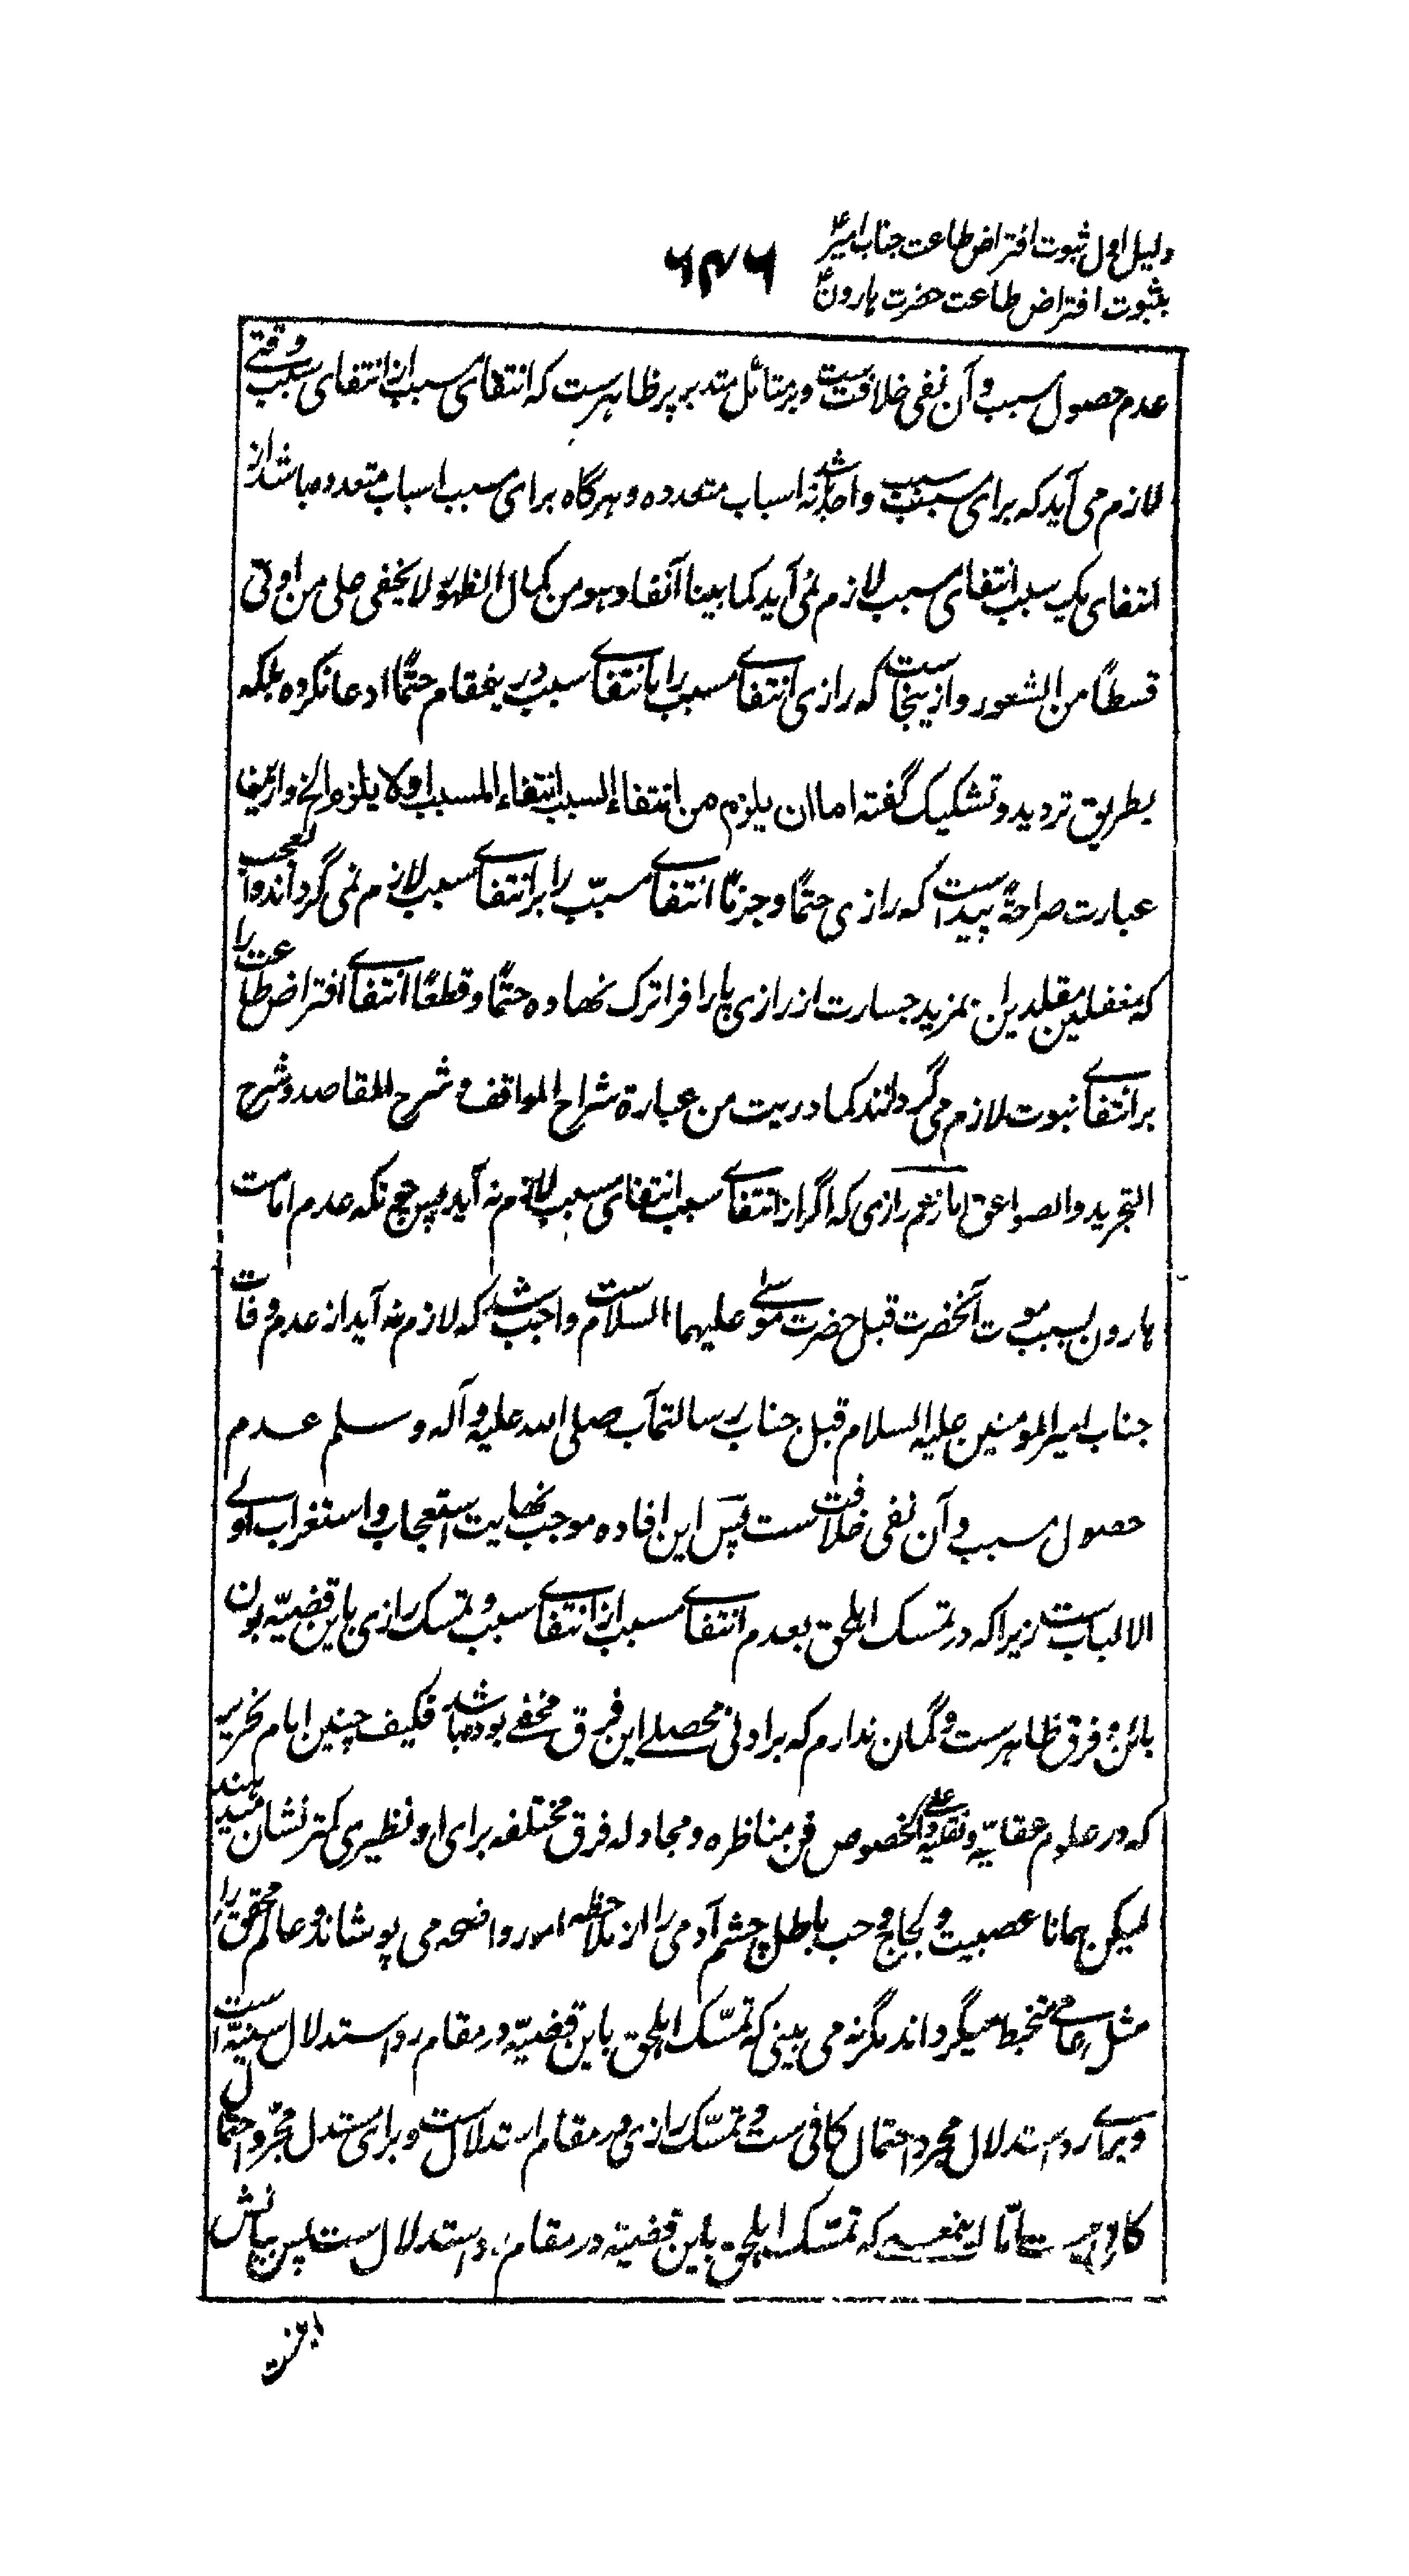 دلیل اول ثبوت افتراض طاعت جناب امیرؑ
بثبوت افتراض طاعت حضرت هارونؑ
۶۴۶
عدم حصول سبب و آن نفی خلافت ست و بر متأمل متدبر پر ظاهرست که انتفای مسبب از انتفای سبب وقتی
لازم می آید که برای مسبب سبب واحد باشد نه اسباب متعدده و هرگاه برای مسبب اسباب متعدده باشد از
انتفای یک سبب انتفای مسبب لازم نمی آید کما بینا آنفا و هو من کمال الظهور لا یخفی علی من اوتی
قسطًا من الشعور و ازینجاست که رازی انتفای مسبب را بانتفای سبب درینمقام حتمًا ادعا نکرده بلکه
بطریق تردید و تشکیک گفته اما ان یلزم من انتفاء السبب انتفاء المسبب او لا یلزم الخ و ازین
عبارت صراحةً پیداست که رازی حتمًا و جزمًا انتفای مسبّب را بر انتفای سبب لازم نمی گرداند و العجب
که متفلین مقلدین بمزید جسارت از رازی پا را فراترک نهاده حتمًا و قطعًا انتفای افتراض طاعت را
بر انتفای نبوت لازم می گردانند کما دریت من عبارة شراح المواقف و شرح المقاصد و شرح
التجرید و الصواعق اما زعم رازی که اگر از انتفای سبب انتفای مسبب لازم نه آید پس چنانکه عدم امامت
هارون بسبب موت آنحضرت قبل حضرت موسی علیهما السلام ست واجب شد که لازم نه آید از عدم وفات
جناب امیر المومنین علیه السلام قبل جناب رسالتمآب صلی الله علیه و آله و سلم عدم
حصول سبب و آن نفی خلافت ست پس این افاده موجب نهایت استعجاب و استغراب اولی
الالباب ست زیرا که در تمسک اهلحق بعدم انتفای مسبب از انتفای سبب و تمسک رازی باین قضیّه بون
بائن و فرق ظاهرست و گمان ندارم که بر ادنی محصلی این فرق مخفی بوده باشد فکیف چنین امام نحریر
که در علوم عقلیّه و نقلیّه علی الخصوص فن مناظره و مجادله فرق مختلفه برای او نظیری کمتر نشان میدهند
لیکن همانا عصبیت و لجاج و حب باطل چشم آدمی را از ملاحظه امور واضحه می پوشاند و عالم محقق را
مثل عامی متخبط میگرداند مگر نه می بینی که تمسّک اهلحق باین قضیّه در مقام رد استدلال سنیّه است
و برای رد استدلال مجرد احتمال کافی ست و تمسّک رازی در مقام استدلال ست و برای مستدل مجرّد احتمال
کافی نیست امّا اینمعنی که تمسّک اهلحق باین قضیّه در مقام رد استدلال ست پس بیانش